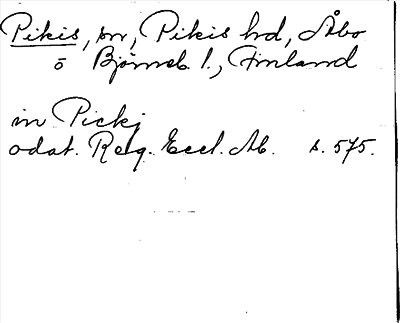 Pikis, sn, Pikis hd, Åbo
o Björneb. l., Finland
in Pickj
odat. Reg. Eccl. Ab. s. 575.